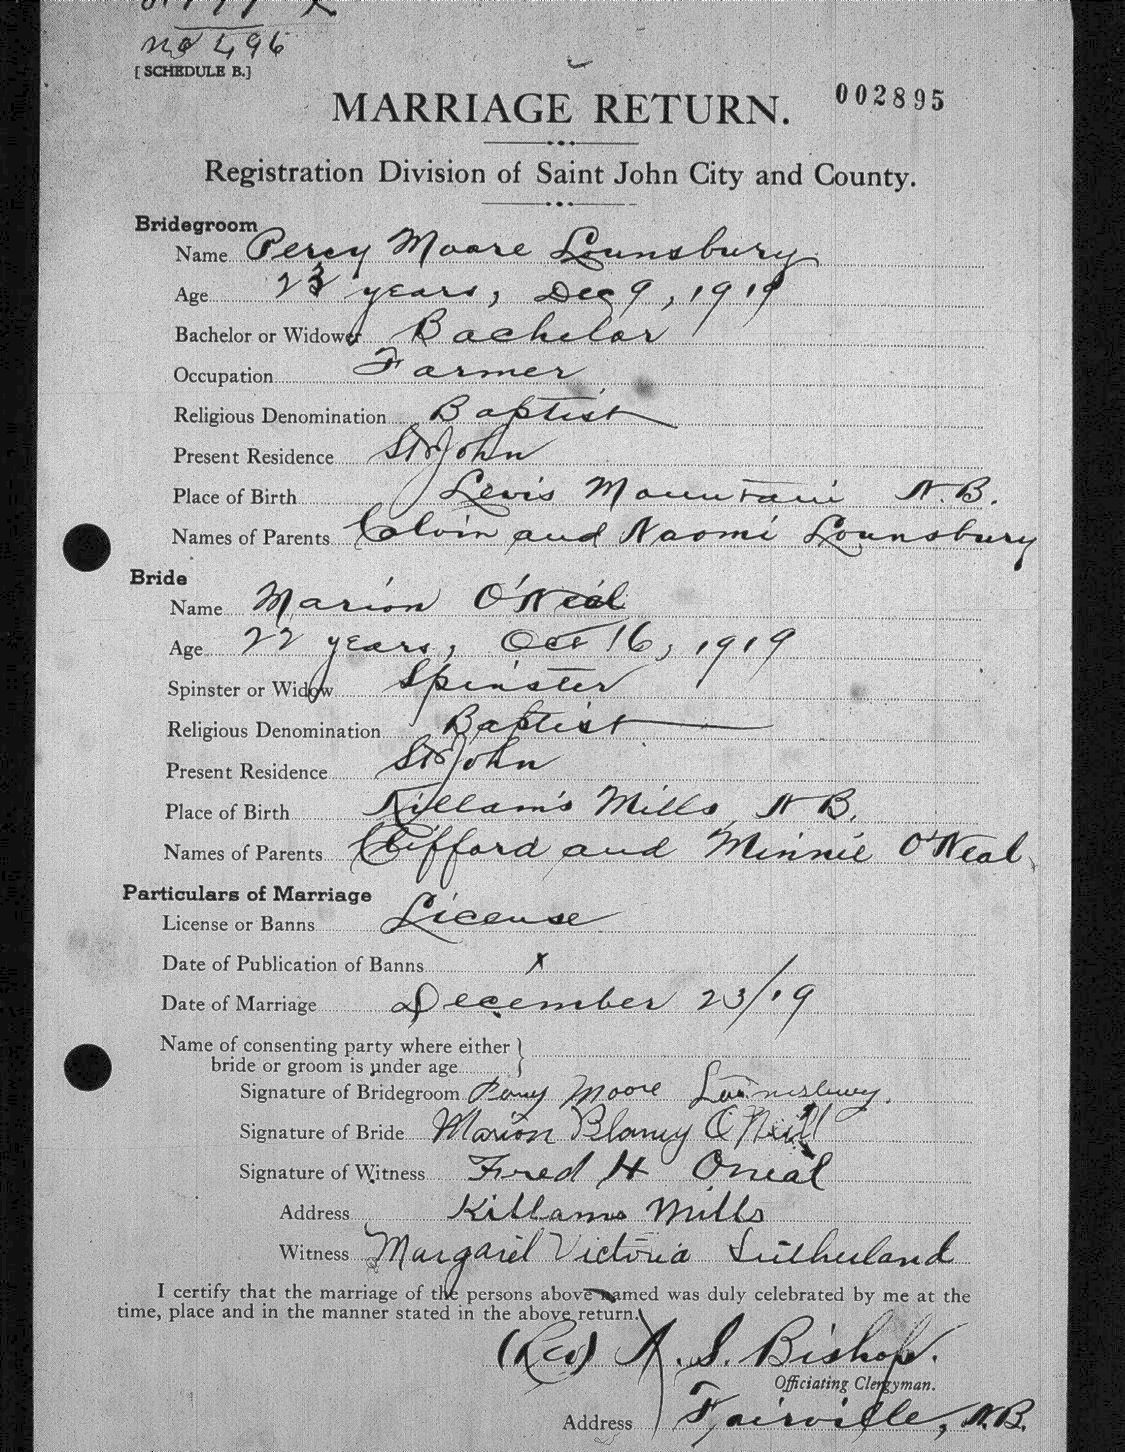 no 496
[ SCHEDULE B.]
MARRIAGE RETURN.
002895
Registration Division of Saint John City and County.
Bridegroom
Name Percy Moore Lounsbury
Age 23 years, Dec 9, 1919
Bachelor or Widower Bachelor
Occupation Farmer
Religious Denomination Baptist
Present Residence St John
Place of Birth Lewis Mountain N.B.
Names of Parents Calvin and Naomi Lounsbury
Bride
Name Marion O'Neal
Age 22 years, Oct 16, 1919
Spinster or Widow Spinster
Religious Denomination Baptist
Present Residence St John
Place of Birth Killam's Mills, N B.
Names of Parents Clifford and Minnie O'Neal
Particulars of Marriage
License or Banns License
Date of Publication of Banns x
Date of Marriage December 23/19
Name of consenting party where either
bride or groom is under age
Signature of Bridegroom Percy Moore Lounsbury.
Signature of Bride Marion O'Neill
Signature of Witness Fred H Oneal
Address Killams Mills
Witness Margaret Victoria Sutherland
I certify that the marriage of the persons above named was duly celebrated by me at the
time, place and in the manner stated in the above return.
(Rev) A. S. Bishop.
Officiating Clergyman.
Address Fairville, N.B.